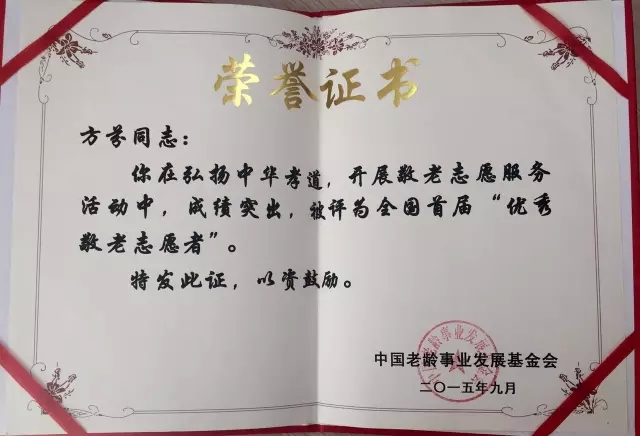 荣誉证书
方芬同志：
你在弘扬中华孝道，开展敬老志愿服务
活动中，成绩突出，被评为全国首届“优秀
敬老志愿者”。
特发此证，以资鼓励。
中国老龄事业发展基金会
二〇一五年九月